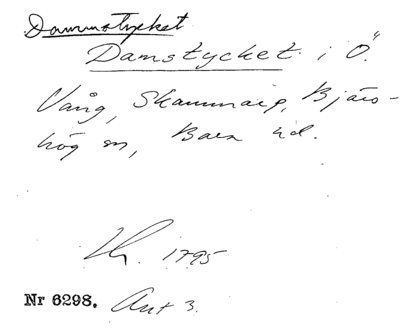 Dammstycket
Damstycket i Ö.
Vång, Skammarp, Bjäres-
hög sn, Bara hd.
1795
Nr 6298. Akt 3.